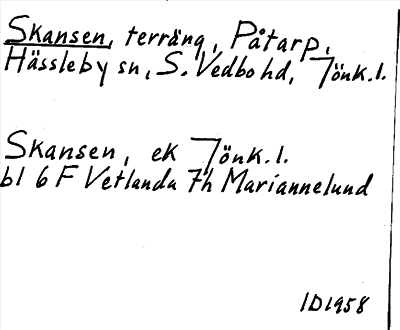 Skansen, terräng, Påtarp,
Hässleby sn, S. Vedbo hd, Jönk. l.
Skansen, ek Jönk. l.
bl 6 F Vetlanda 7h Mariannelund
ID1958